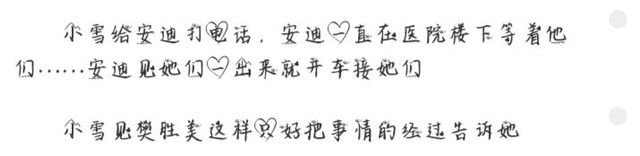 小雪给安迪打电话，安迪一直在医院楼下等着他
们……安迪见她们一出来就开车接她们
小雪见樊胜美这样只好把事情的经过告诉她